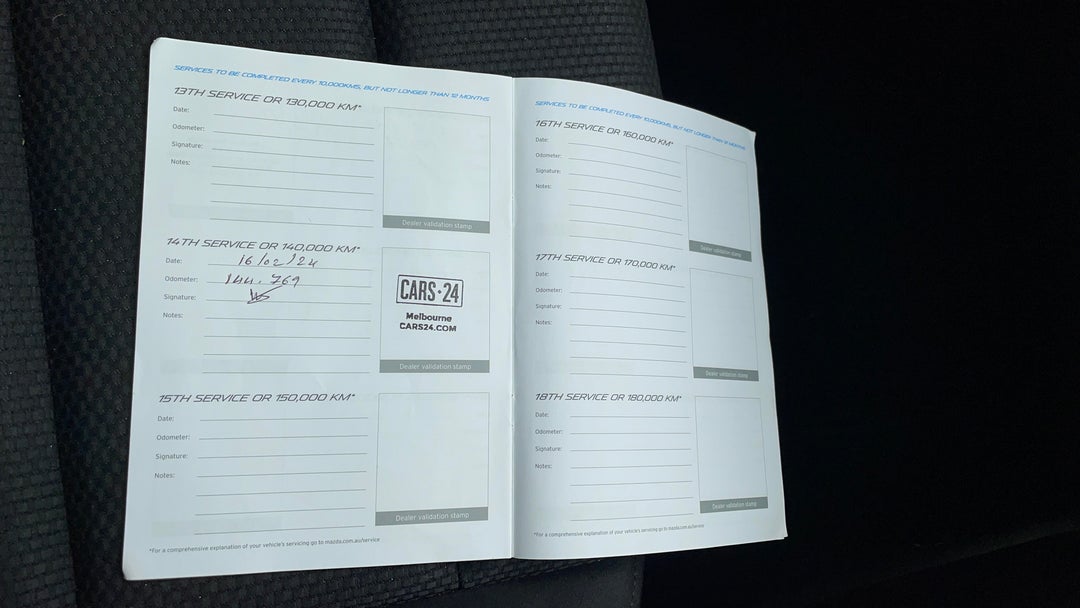 SERVICES TO BE COMPLETED EVERY 10,000KMS, BUT NOT LONGER THAN 12 MONTHS
13TH SERVICE OR 130,000 KM*
Date:
Odometer:
Signature:
Notes:
Dealer validation stamp
14TH SERVICE OR 140,000 KM*
Date: 16/02/24
Odometer: 144.769
Signature:
Notes:
CARS•24
Melbourne
CARS24.COM
Dealer validation stamp
15TH SERVICE OR 150,000 KM*
Date:
Odometer:
Signature:
Notes:
Dealer validation stamp
*For a comprehensive explanation of your vehicle's servicing go to mazda.com.au/service
SERVICES TO BE COMPLETED EVERY 10,000KMS, BUT NOT LONGER THAN 12 MONTHS
16TH SERVICE OR 160,000 KM*
Date:
Odometer:
Signature:
Notes:
Dealer validation stamp
17TH SERVICE OR 170,000 KM*
Date:
Odometer:
Signature:
Notes:
Dealer validation stamp
18TH SERVICE OR 180,000 KM*
Date:
Odometer:
Signature:
Notes:
Dealer validation stamp
*For a comprehensive explanation of your vehicle's servicing go to mazda.com.au/service